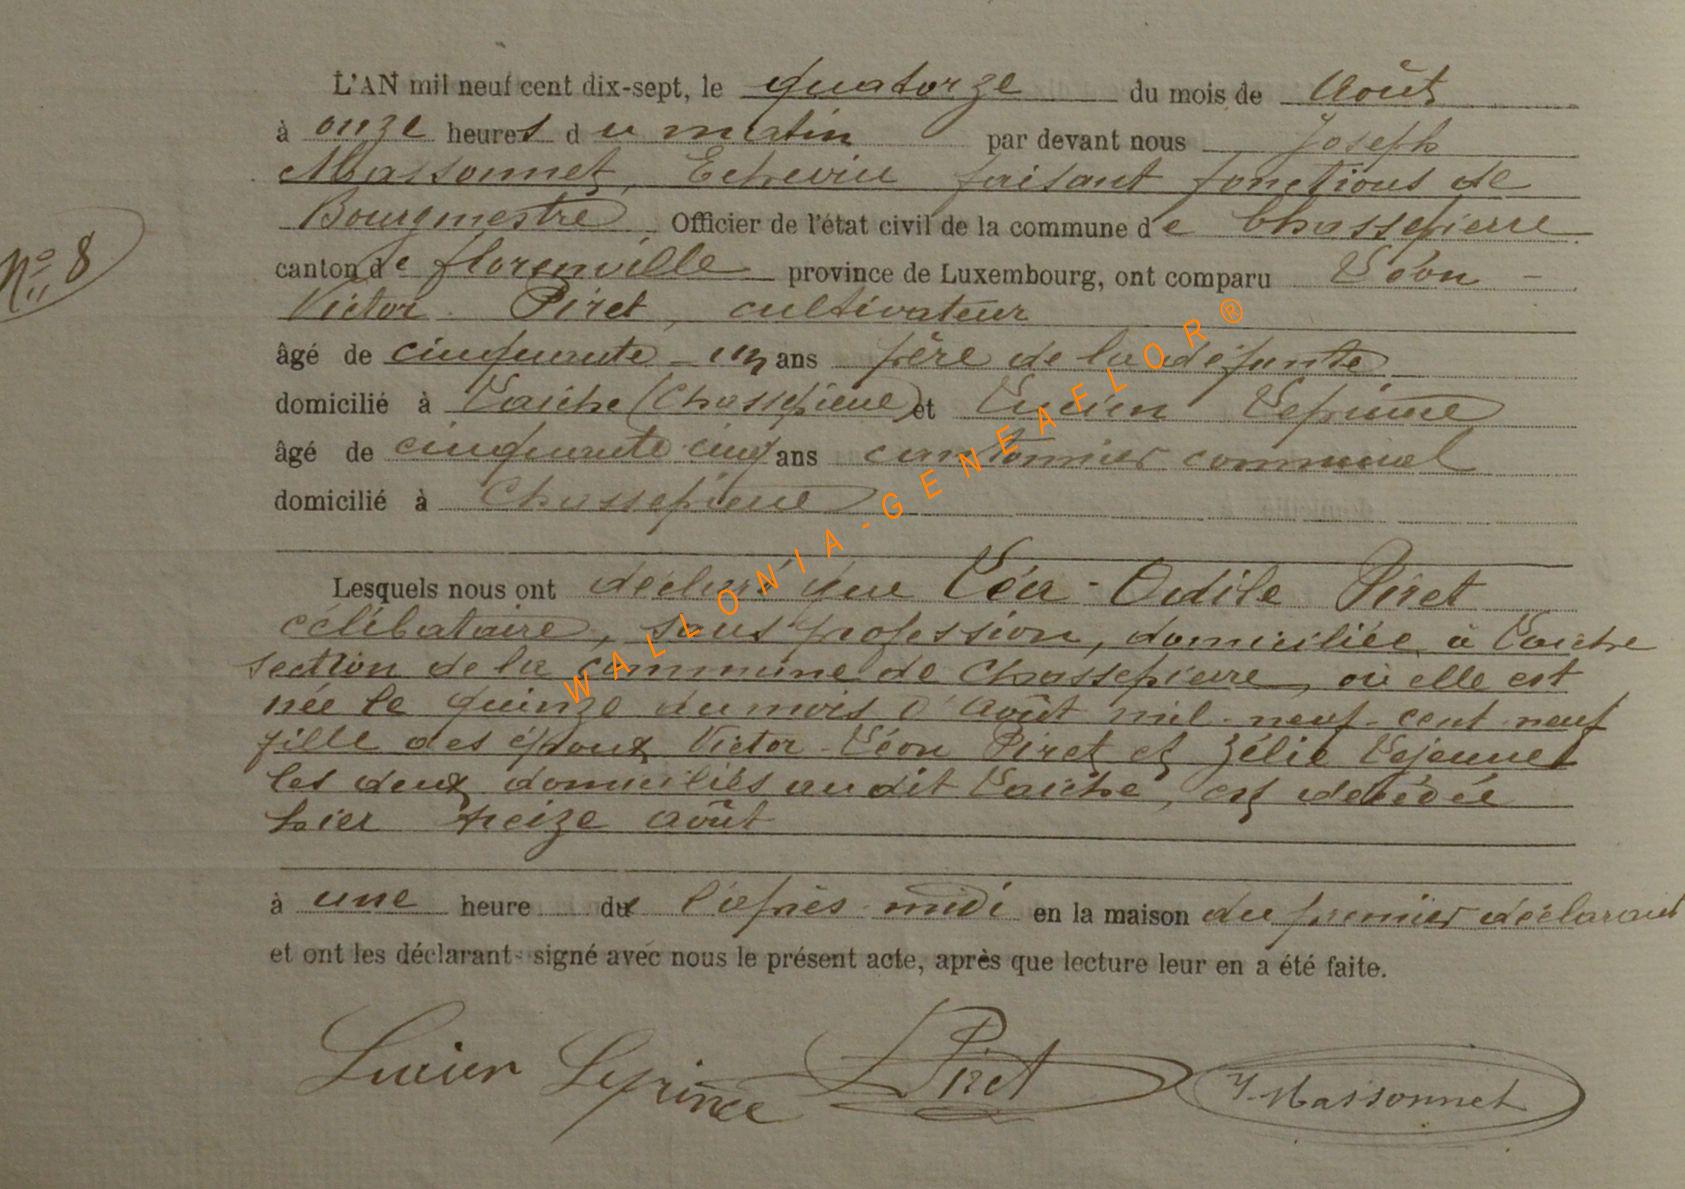 L'AN mil neuf cent dix-sept, le quatorze du mois de Août
à onze heures du matin par devant nous Joseph
Massonnet, Echevin faisant fonctions de
Bourgmestre Officier de l'état civil de la commune de Chassepierre
N° 8
canton de florenville province de Luxembourg, ont comparu Léon -
Victor Piret, cultivateur
âgé de cinquante-un ans père de la défunte
domicilié à Laiche (Chassepierre) et Lucien Leprince
âgé de cinquante cinq ans cantonnier communal
domicilié à Chassepierre
Lesquels nous ont déclaré que Léa-Odile Piret
célibataire, sans profession, domiciliée à Laiche
section de la commune de Chassepierre, où elle est
née le quinze du mois d'Août mil-neuf-cent neuf
fille des époux Victor-Léon Piret et Zélie Lejeune
les deux domiciliés au dit Laiche, est décédée
hier treize août
à une heure du l'après-midi en la maison du premier déclarant
et ont les déclarant signé avec nous le présent acte, après que lecture leur en a été faite.
Lucien Leprince LPiret J. Massonnet
WALLONIA-GENEAFLOR®